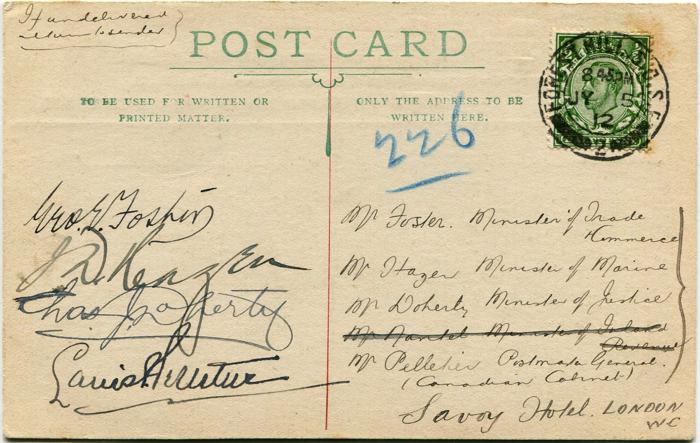 If undelivered
return to sender
POST CARD
TO BE USED FOR WRITTEN OR
PRINTED MATTER.
ONLY THE ADDRESS TO BE
WRITTEN HERE.
226
FOREST HILL S.O. S.E.
8.45PM
JY 5
12
Geo. E. Foster
J D Hazen
Chas. J. Doherty
Louis Pelletier
Mr Foster. Minister of Trade
Kommerce
Mr Hazen Minister of Marine
Mr Doherty Minister of Justice
Mr Nantel Minister of Inland
Revenue
Mr Pelletier Postmaster General.
(Canadian Cabinet)
Savoy Hotel. LONDON
WC